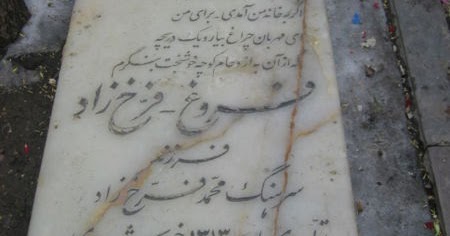 اگر به خانه من آمدی - برای من
ای مهربان چراغ بیار و یک دریچه
که از آن به ازدحام کوچه خوشبخت بنگرم
فروغ - فرّخ زاد
فرزند
سرهنگ محمد فرّخ زاد
۱۳۱۳